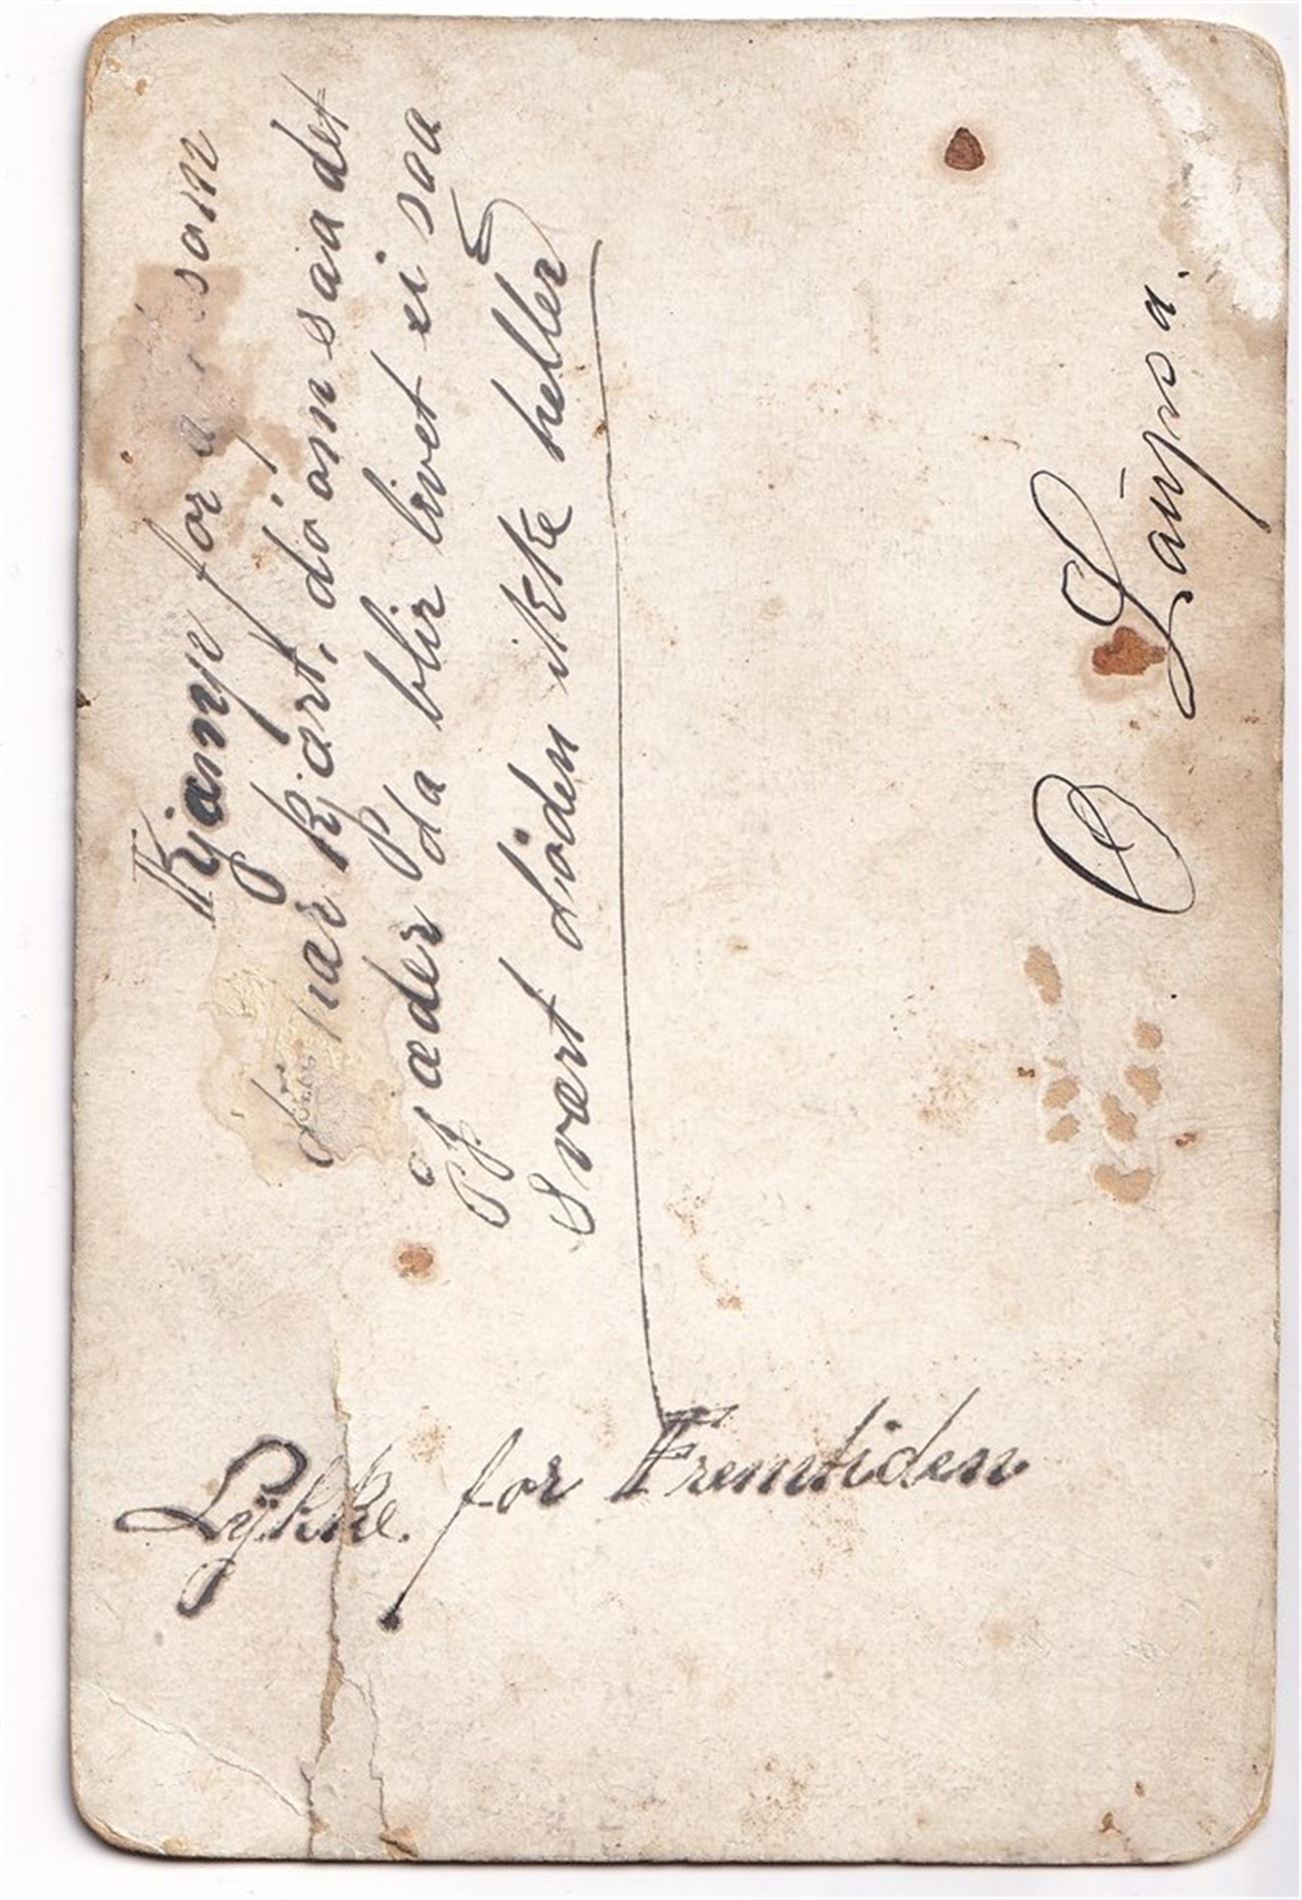 Kjamp for som
har kjart, dö om saa det
gjæder da blir livet ei saa
Svært döden ikke heller
Lykke for Fremtiden